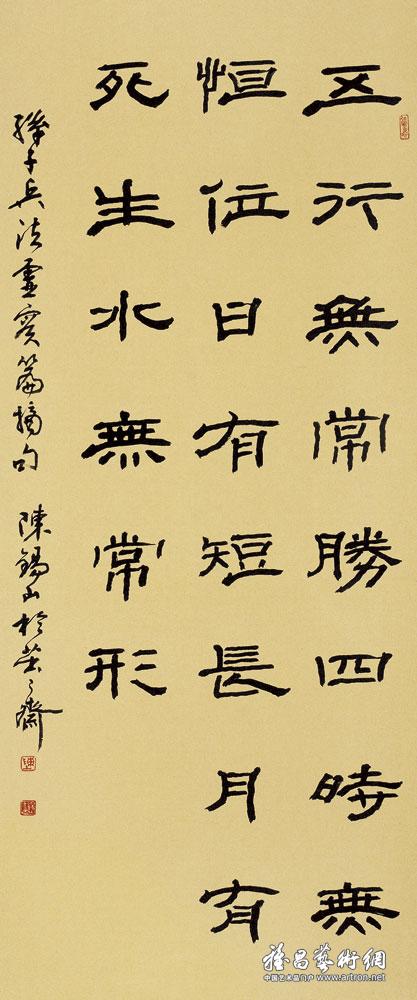 五行無常勝四時無
恒位日有短長月有
死生水無常形
孫子兵法虛實篇摘句 陳錫山於齋
雅昌藝術網
中国艺术品门户 www.artron.net